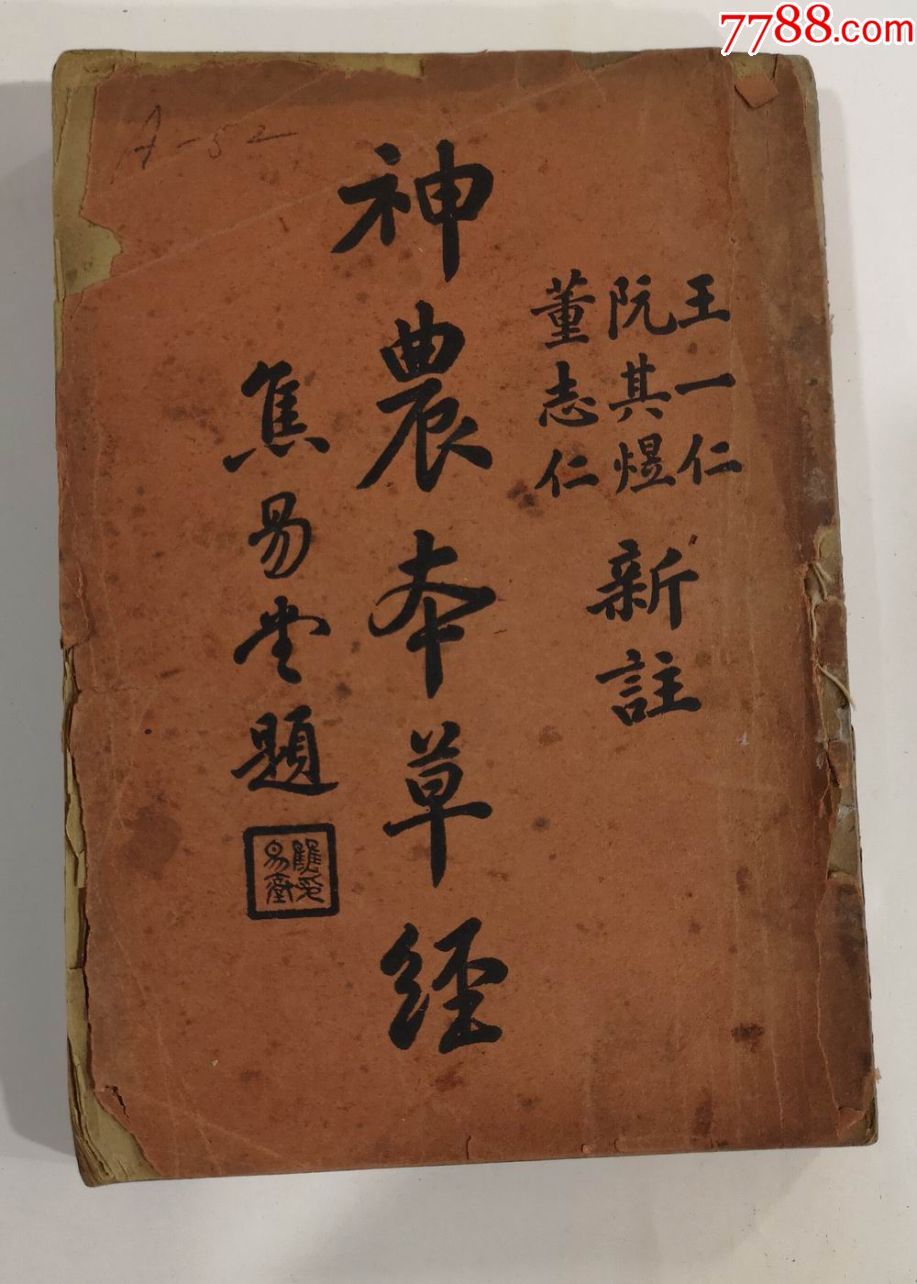 7788.com
A-52
王一仁
阮其煜
董志仁
新註
神農本草經
焦易堂題